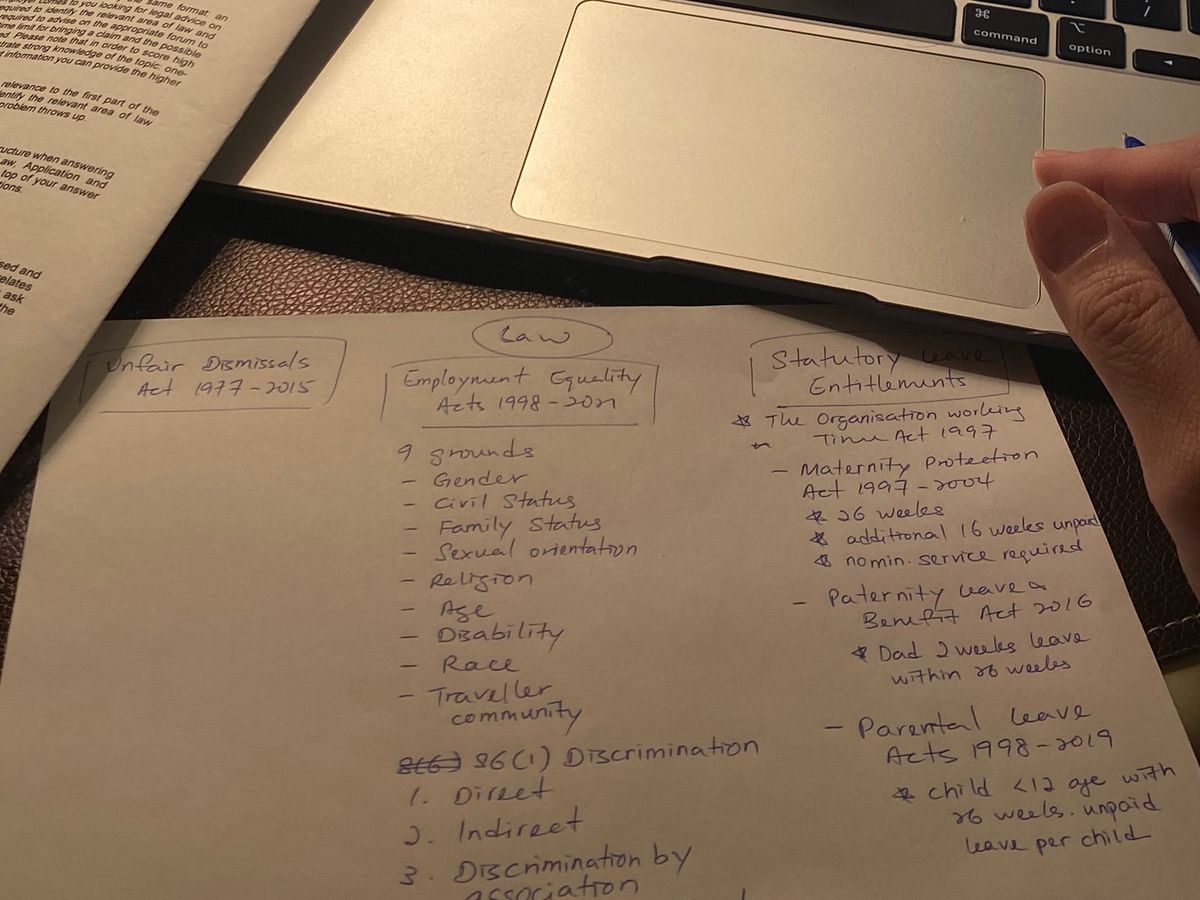 the same format, an
employer comes to you looking for legal advice on
required to identify the relevant area of law and
required to advise on the appropriate forum to
time limit for bringing a claim and the possible
Please note that in order to score high
strong knowledge of the topic: one-
information you can provide the higher
relevance to the first part of the
identify the relevant area of law
problem throws up.
structure when answering
Application and
top of your answer
and
relates
ask
the
⌘
command
⌥
option
/
◄
Law
Unfair Dismissals
Act 1977-2015
Employment Equality
Acts 1998-2021
9 grounds
- Gender
- Civil Status
- Family Status
- Sexual orientation
- Religion
- Age
- Disability
- Race
- Traveller
community
S6(1) Discrimination
1. Direct
2. Indirect
3. Discrimination by
association
Statutory leave
Entitlements
* The Organisation working
Time Act 1997
- Maternity Protection
Act 1997-2004
* 26 weeks
* additional 16 weeks unpaid
* no min. service required
- Paternity leave &
Benefit Act 2016
* Dad 2 weeks leave
within 26 weeks
- Parental leave
Acts 1998-2019
* child <12 age with
26 weeks. unpaid
leave per child